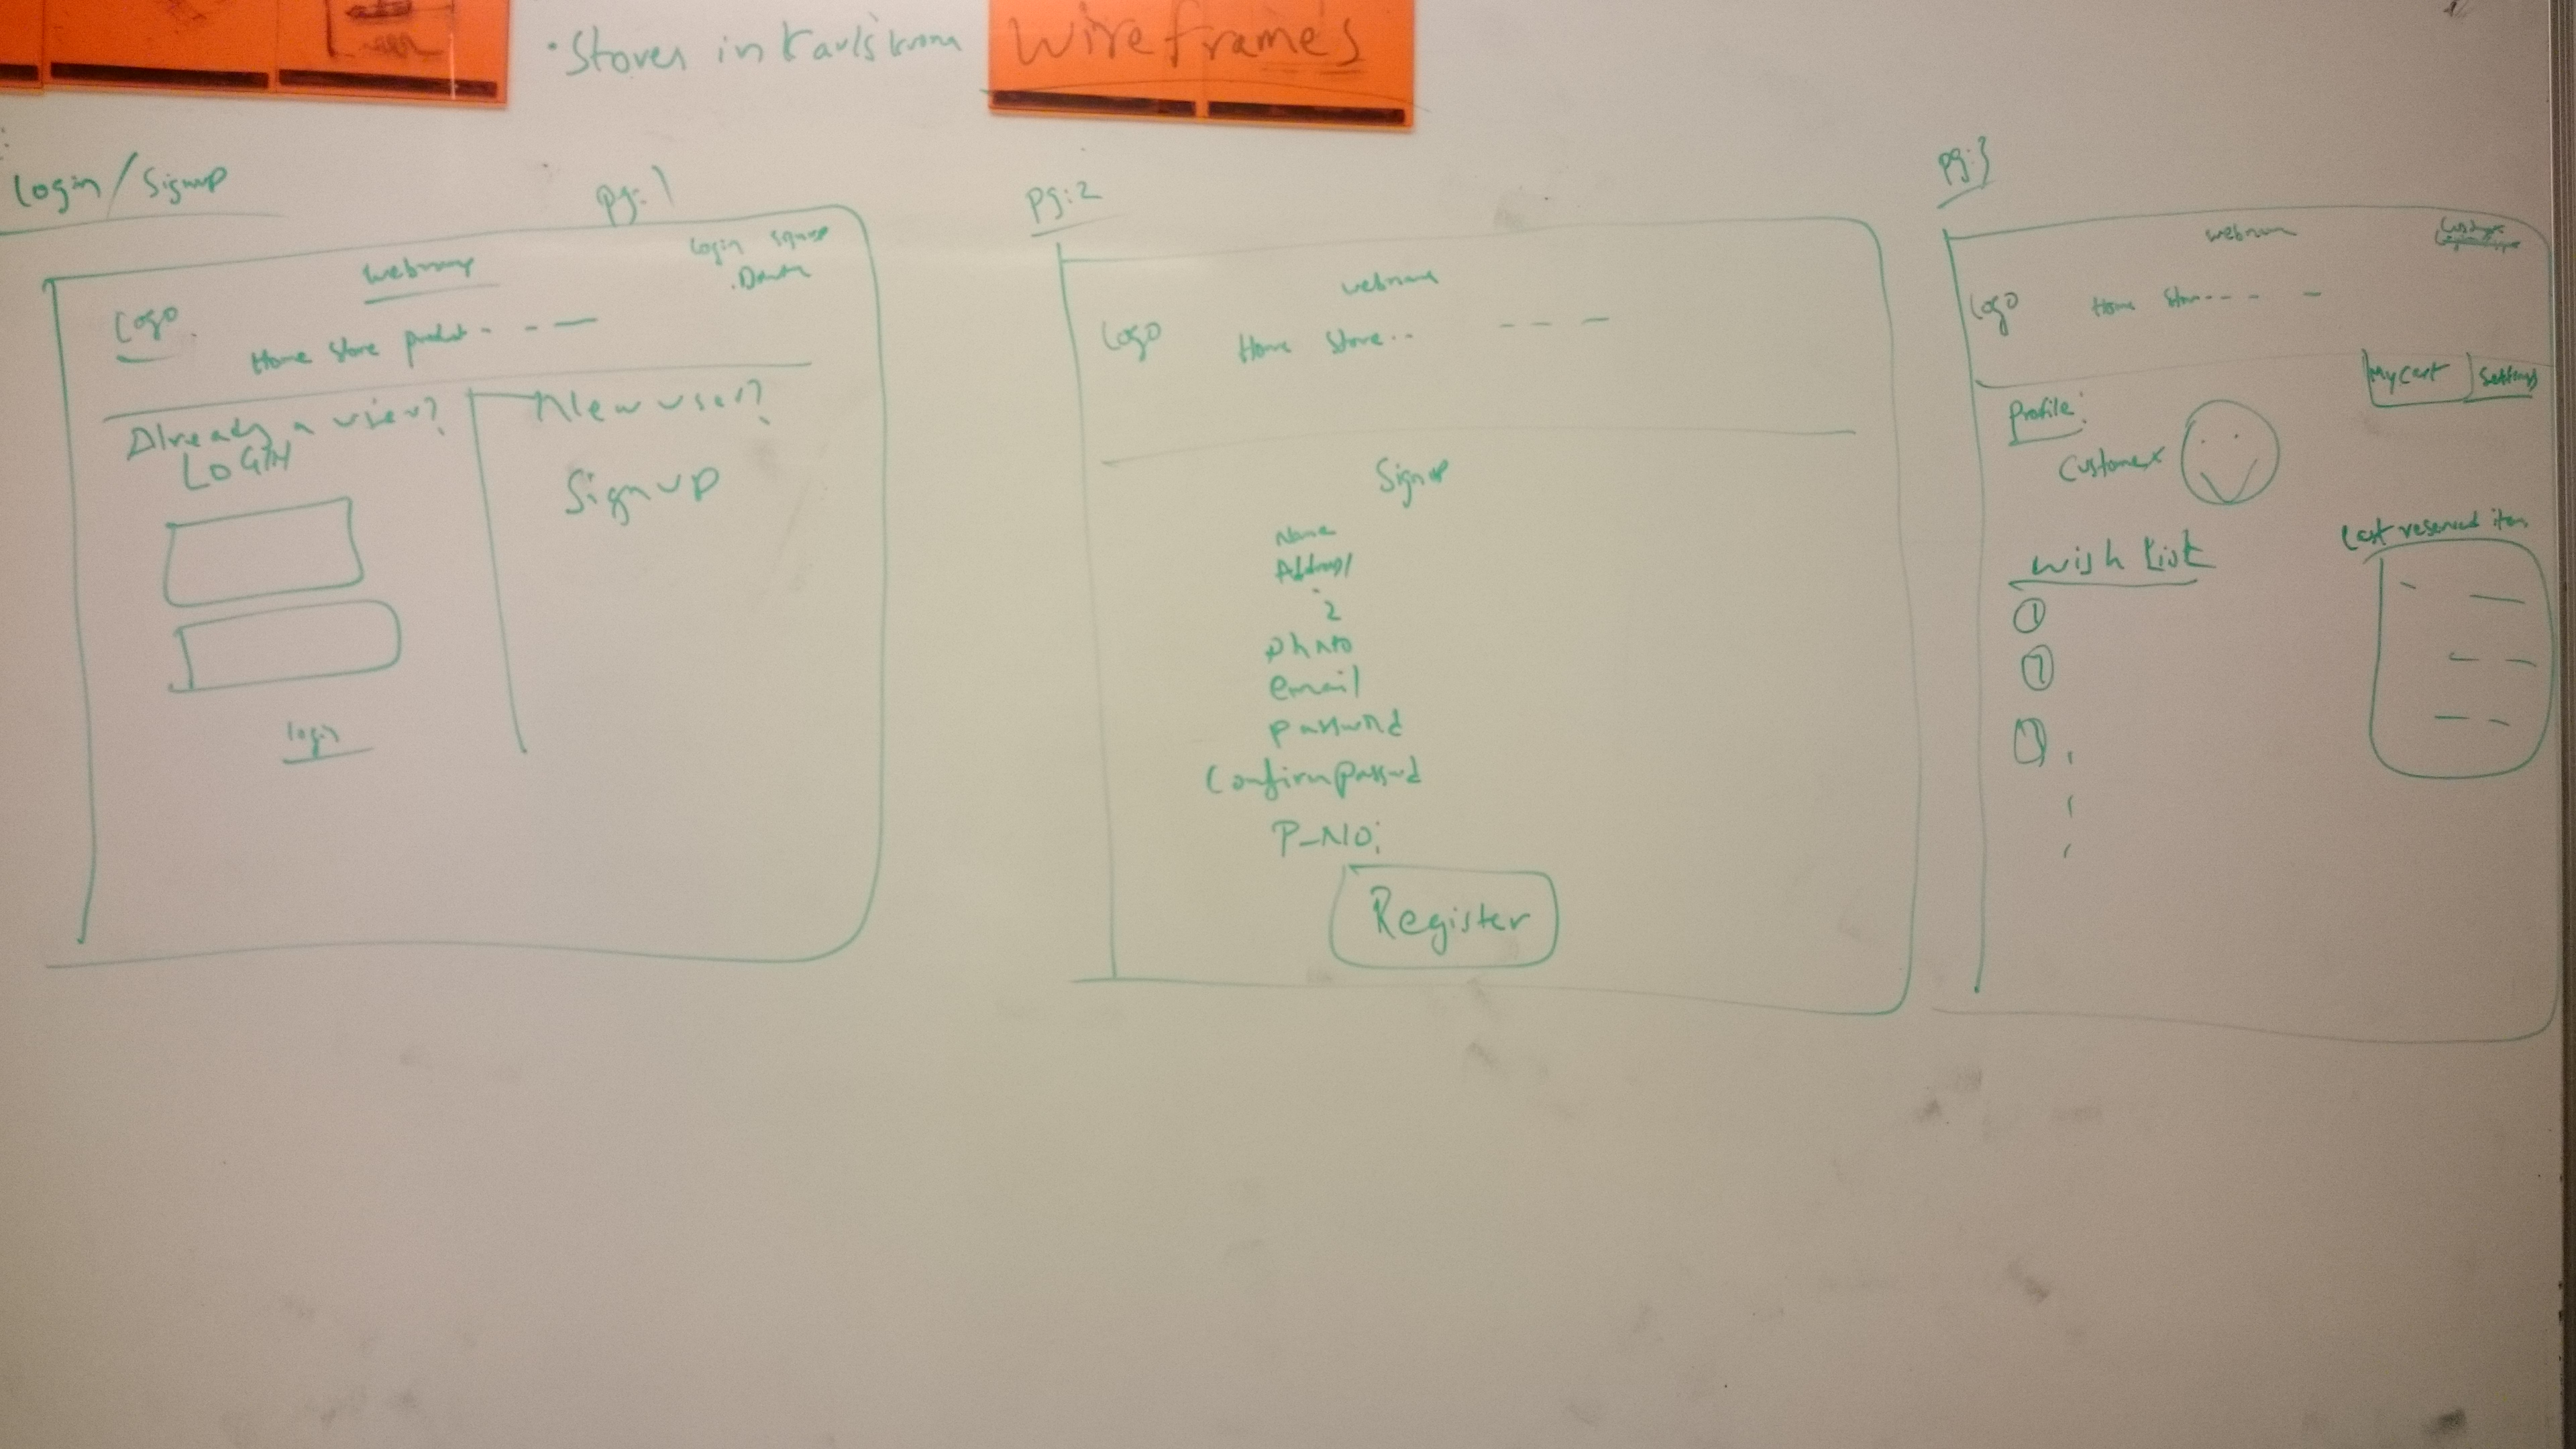 • Stores in Karlskrona
Wireframes
Login / Signup
pg:1
Login Signup
webname
Logo
Home Store product - - —
Already a user?
LOGIN
login
New user?
Signup
pg:2
webname
Logo
Home Store.. - - —
Signup
Name
Address 1
2
ph no
email
password
Confirm Passwd
P-NO:
Register
pg:3
webnam
Logo
Home Stor - - - —
My Cart
Settings
Profile:
Customer
Wish List
1
Last reserved item